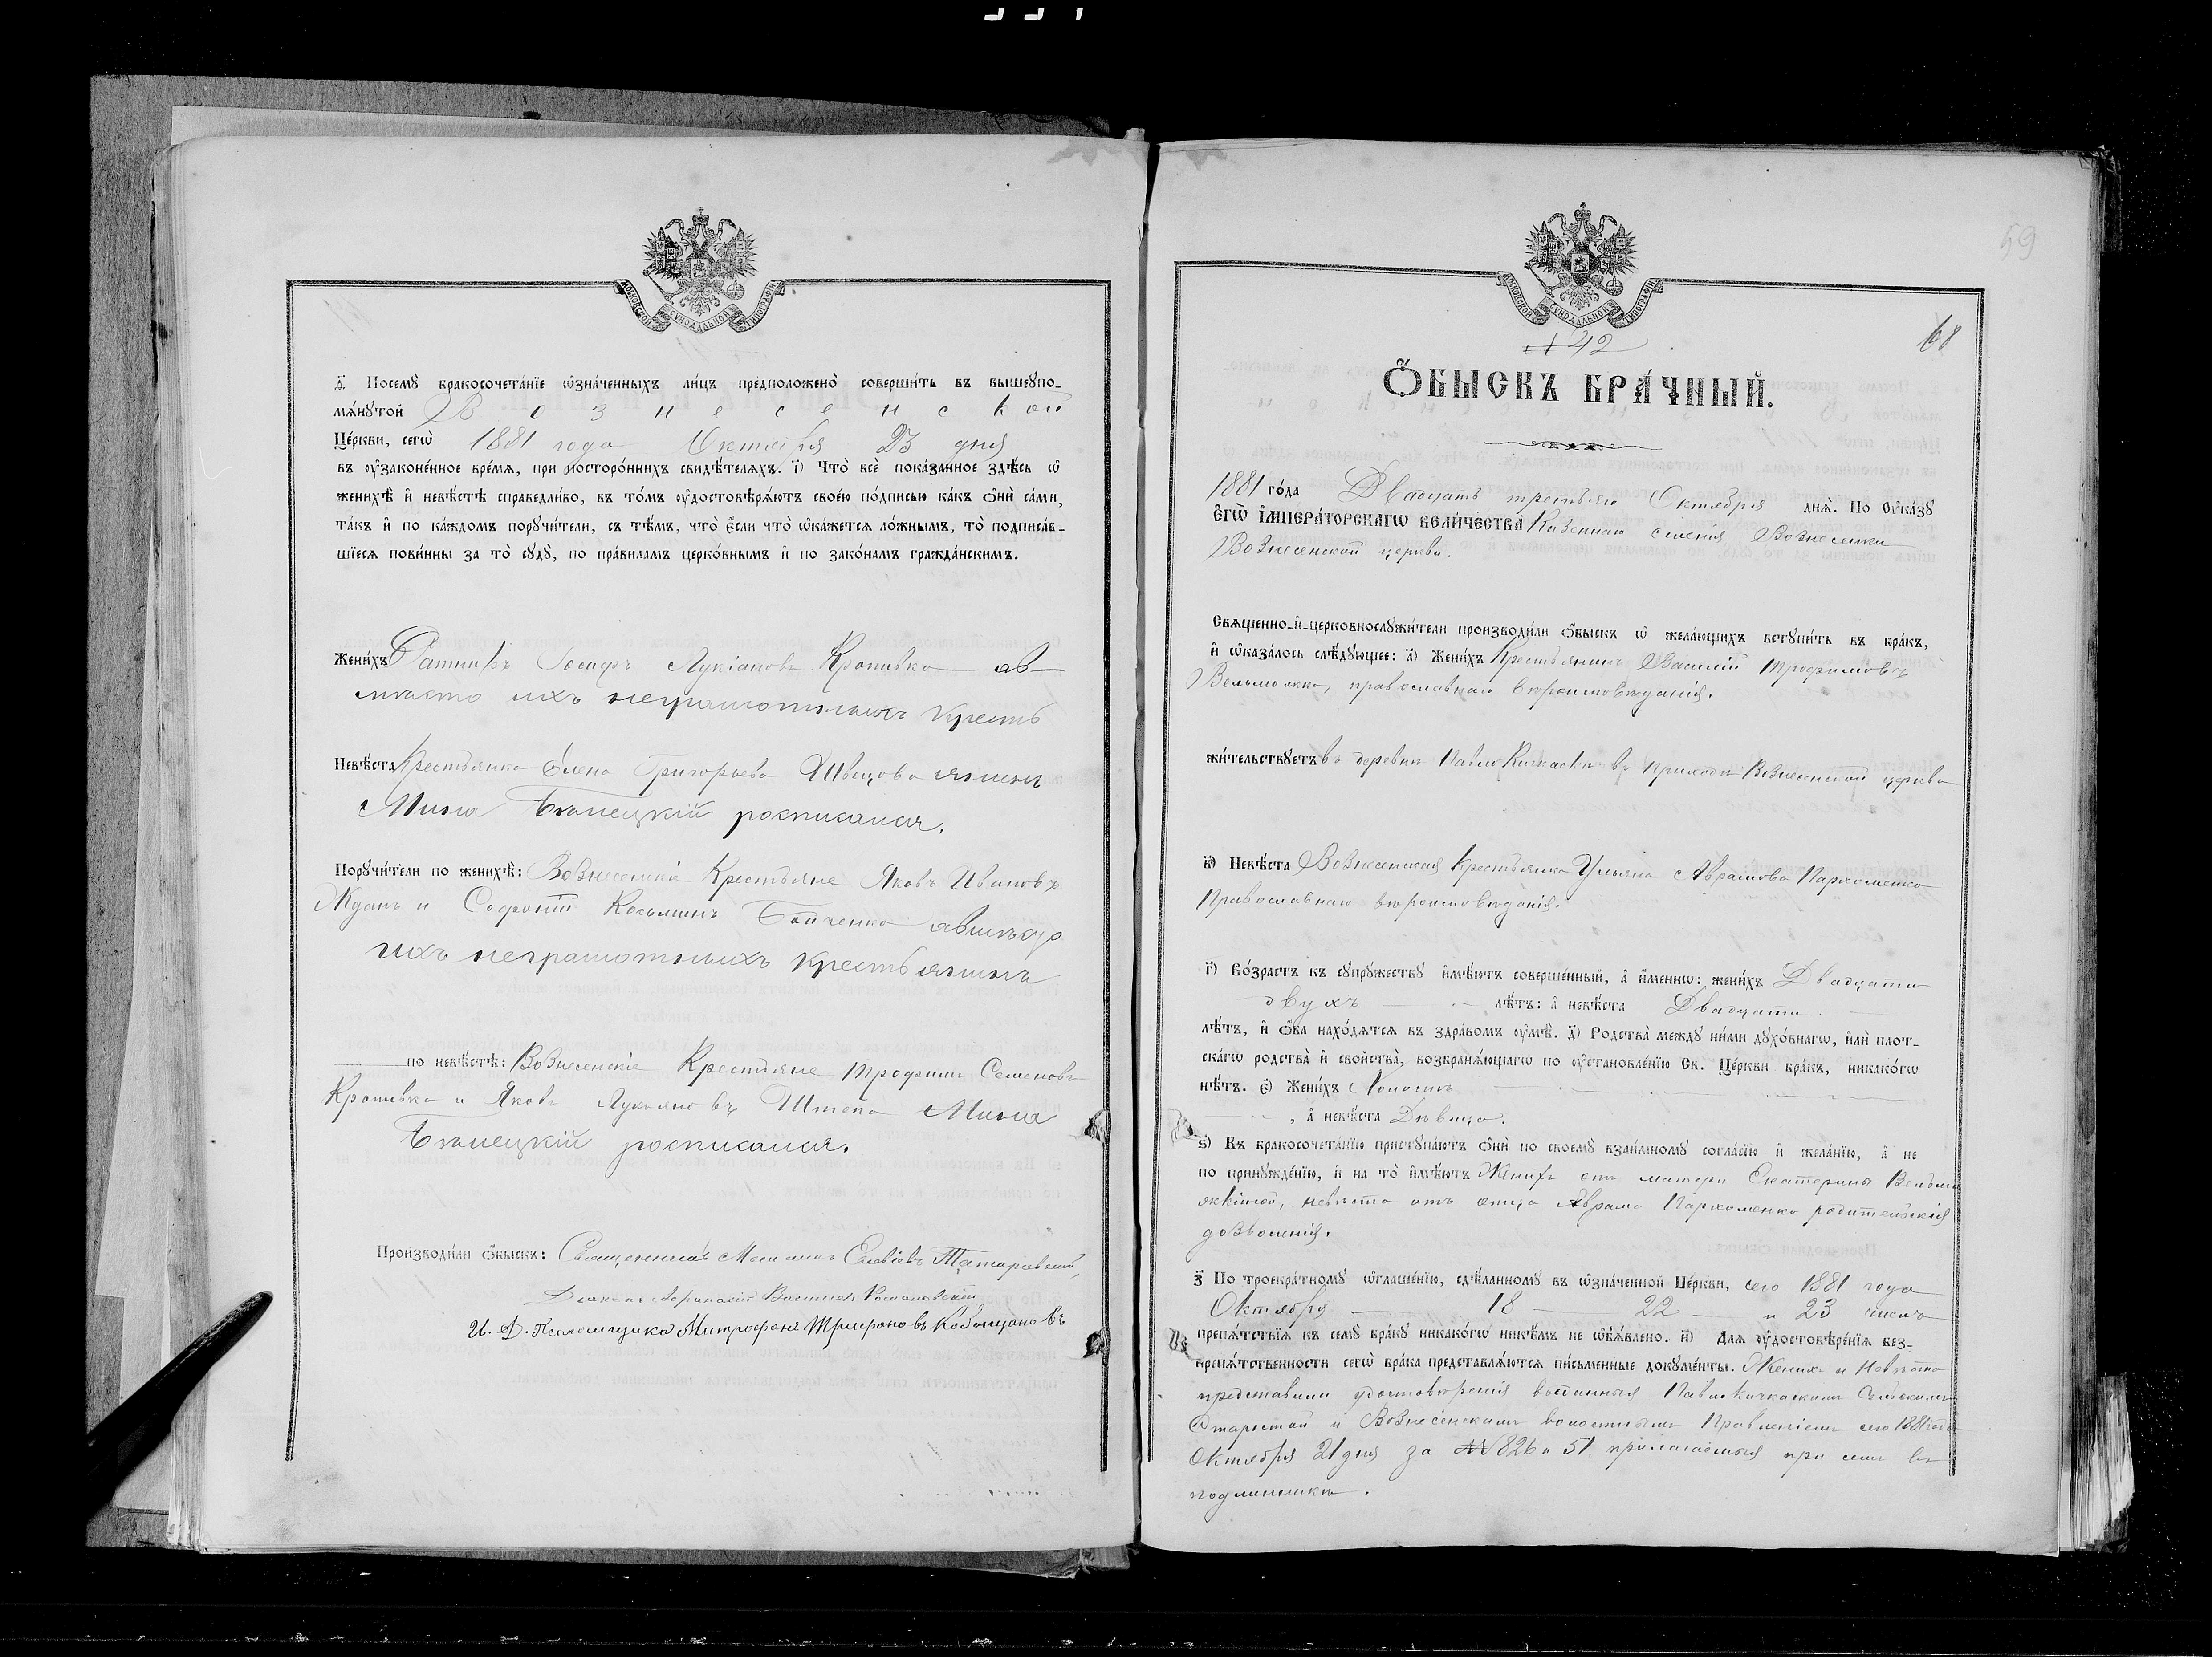 МОСКОВСКОЙ СѴНОДАЛЬНОЙ ТИПОГРАФІИ
д҃і. Посемꙋ̀ бракосочета́нїе ѡ҆зна́ченныхъ ли́цъ предположено̀ соверши́ть въ вышеꙋпо-
мѧ́нꙋтой В о з н е с е н с кой
Це́ркви, сегѡ̀ 1881 года Октября 23 дня
въ ᲂу҆законе́нное вре́мѧ, при посторо́ннихъ свидѣ́телѧхъ. і҃) Что̀ всѐ пока́занное здѣ́сь ѡ҆
женихѣ̀ и҆ невѣ́стѣ справедли́во, въ то́мъ ᲂу҆достовѣрѧ́ютъ свое́ю по́дписью ка́къ ѻ҆нѝ са́ми,
та́къ и҆ по ка́ждомъ порꙋчи́тели, съ тѣ́мъ, что̀ є҆́сли что̀ ѡ҆ка́жетсѧ ло́жнымъ, то̀ подписа́в-
шїесѧ пови́нны за то̀ сꙋдꙋ̀, по пра́виламъ церко́внымъ и҆ по зако́намъ гражда́нскимъ.
Жени́хъ Ратникъ Іосифъ Лукіановъ Кропивка а в-
мѣсто ихъ неграмотныхъ кресть
Невѣ́ста Крестьянка Елена Григорьева Швецова янинъ
Мина Бѣлецкій росписался.
Порꙋчи́тели по женихѣ̀: Вознесенскіе Крестьяне Яковъ Ивановъ
Жданъ и Софоній Косьминъ Бойченко а вмѣсто
ихъ неграмотныхъ крестьянинъ
по невѣ́стѣ: Вознесенскіе Крестьяне Трофимъ Семеновъ
Кропивка и Яковъ Лукьяновъ Штепа Мина
Бѣлецкій росписался.
Производи́ли ѻ҆́быскъ: Священникъ Татаревскій,
Діаконъ Василіевъ Романовскій
И. Д. Псаломщика Митрофанъ Трифоновъ
59
МОСКОВСКОЙ СѴНОДАЛЬНОЙ ТИПОГРАФІИ
№ 42
68
Ѻ҆́БЫСКЪ БРА́ЧНЫЙ.
1881 го́да Двадцать третьяго Октября днѧ̀. По Оу҆ка́зꙋ
Є҆ГѠ̀ І҆МПЕРА́ТОРСКАГѠ ВЕЛИ́ЧЕСТВА Казеннаго селенія Вознесенки
Вознесенской церкви.
Свѧще́нно-и҆-церковнослꙋжи́тели производи́ли ѻ҆́быскъ ѡ҆ жела́ющихъ встꙋпи́ть въ бра́къ,
и҆ ѡ҆каза́лось слѣ́дꙋющее: а҃) Жени́хъ Крестьянинъ Василій Трофимовъ
Вельможко, православнаго вѣроисповѣданія.
жи́тельствꙋетъ въ деревни Павло Кичкаскѣ въ приходѣ Вознесенской церкви
в҃) Невѣ́ста Вознесенская Крестьянка Ульяна Аврамова Пархоменко
Православнаго вѣроисповѣданія.
г҃) Во́зрастъ къ сꙋпрꙋ́жествꙋ и҆мѣ́ютъ соверше́нный, а҆ и҆́меннѡ: жени́хъ Двадцати
двухъ лѣ́тъ: а҆ невѣ́ста Двадцати
лѣ́тъ, и҆ ѻ҆́ба нахо́дѧтсѧ въ здра́вомъ ᲂу҆мѣ̀. д҃) Родства̀ междꙋ̀ ни́ми дꙋхо́внагѡ, и҆лѝ плот-
ска́гѡ родства̀ и҆ свойства̀, возбранѧ́ющагѡ по ᲂу҆становле́нїю Св. Це́ркви бра́къ, никако́гѡ
нѣ́тъ. є҃) Жени́хъ Холостъ
, а҆ невѣ́ста Дѣвица.
ѕ҃) Къ бракосочета́нїю пристꙋпа́ютъ ѻ҆нѝ по своемꙋ̀ взаи́мномꙋ согла́сїю и҆ жела́нїю, а҆ не
по принꙋжде́нїю, и҆ на то̀ и҆мѣ́ютъ Женихъ отъ матери Екатерины Вельмо
жкиной, невѣста отъ отца Аврама Пархоменко родительскія
дозволенія.
з҃) По троекра́тномꙋ ѡ҆глаше́нїю, сдѣ́ланномꙋ въ ѡ҆зна́ченной Це́ркви, сего 1881 года
Октября 18 22 и 23 чиселъ
препѧ́тствїѧ къ семꙋ̀ бра́кꙋ никако́гѡ никѣ́мъ не ѡ҆б̾ѧ́влено. и҃) Длѧ ᲂу҆достовѣре́нїѧ без-
препѧ́тственности сегѡ̀ бра́ка представлѧ́ютсѧ пи́сьменные докꙋме́нты. Женихъ и Невѣста
представили удостовѣренія выданныя Павло Кичкаскимъ Сельскимъ
Старостой и Вознесенскимъ волостнымъ Правленіемъ сего 1881 года
Октября 21 дня за №№ 826 и 51. прилагаемыя при семъ въ
подлинникѣ.